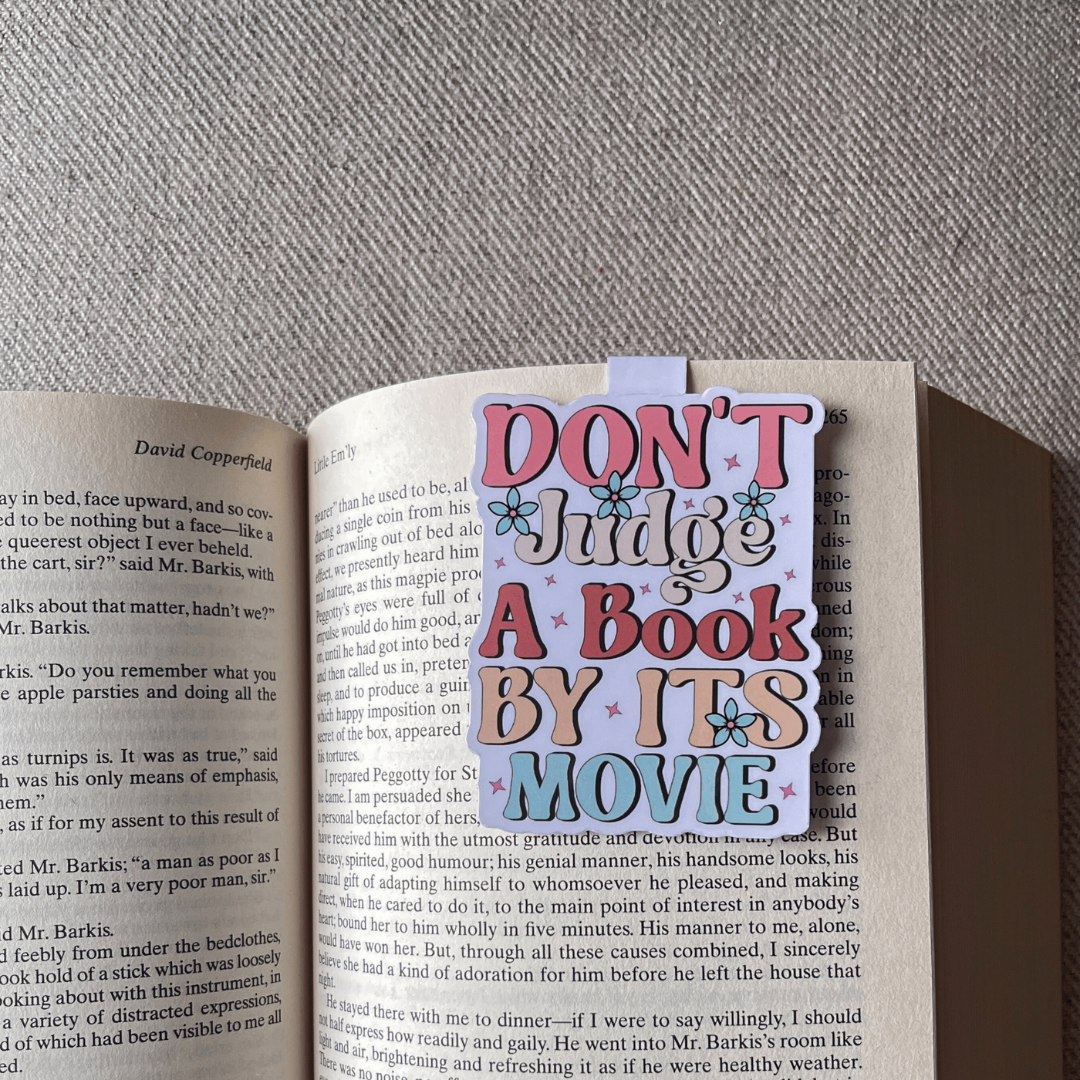 David Copperfield
ay in bed, face upward, and so cov-
ed to be nothing but a face—like a
queerest object I ever beheld.
the cart, sir?” said Mr. Barkis, with
alks about that matter, hadn't we?”
Mr. Barkis.
rkis. “Do you remember what you
e apple parsties and doing all the
as turnips is. It was as true,” said
h was his only means of emphasis,
hem.”
, as if for my assent to this result of
ted Mr. Barkis; “a man as poor as I
s laid up. I'm a very poor man, sir.”
id Mr. Barkis.
d feebly from under the bedclothes,
ook hold of a stick which was loosely
oking about with this instrument, in
a variety of distracted expressions,
d of which had been visible to me all
ed.
Little Em'ly
265
DON'T
Judge
A Book
BY ITS
MOVIE
nearer” than he used to be, al
ducing a single coin from his
mies in crawling out of bed alo
effect, we presently heard him
mal nature, as this magpie proc
Peggotty's eyes were full of
impulse would do him good, an
on, until he had got into bed a
and then called us in, preten
sleep, and to produce a guin
which happy imposition on
secret of the box, appeared
his tortures.
I prepared Peggotty for St
he came. I am persuaded she
a personal benefactor of hers,
have received him with the utmost gratitude and devotion in any case. But
his easy, spirited, good humour; his genial manner, his handsome looks, his
natural gift of adapting himself to whomsoever he pleased, and making
direct, when he cared to do it, to the main point of interest in anybody's
heart; bound her to him wholly in five minutes. His manner to me, alone,
would have won her. But, through all these causes combined, I sincerely
believe she had a kind of adoration for him before he left the house that
night.
He stayed there with me to dinner—if I were to say willingly, I should
not half express how readily and gaily. He went into Mr. Barkis's room like
light and air, brightening and refreshing it as if he were healthy weather.
There was no noise, no
pro-
ago-
x. In
dis-
while
rous
ned
dom;
ning
n in
able
r all
efore
been
would